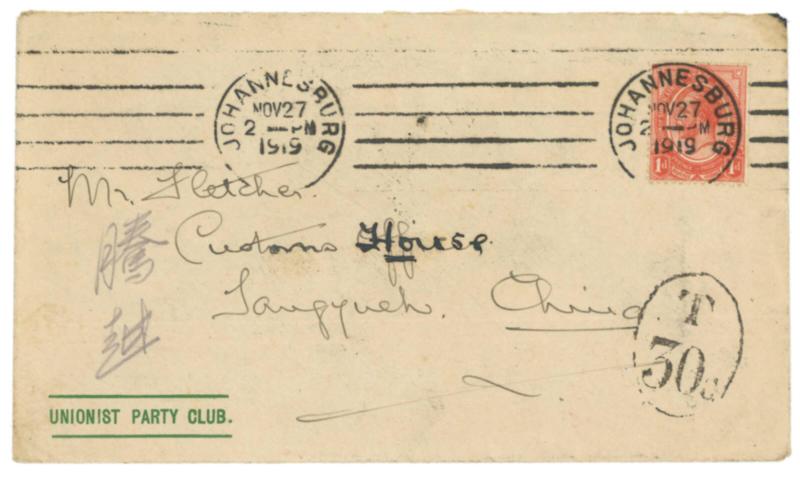 JOHANNESBURG
NOV 27
2 — PM
1919
JOHANNESBURG
NOV 27
2 — PM
1919
1d 1d
Mr. Fletcher.
Customs House
Tangyueh. China
騰越
T
30c
UNIONIST PARTY CLUB.